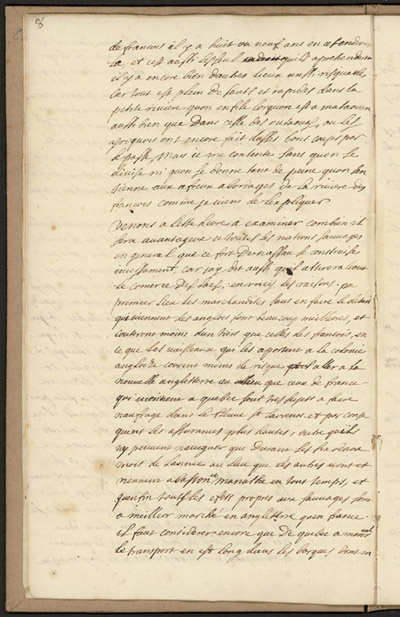 8
de francois il y a huit ou neuf ans en cet endroit
la, et cest aussi le seul endroit quils aprehendent
il y a encore bien dautres lieux aussi risquables
car tout est plein de sauts et rapides dans la
petite riviere quon enfile lorsquon est a mataouan
aussi bien que dans celle des outaouas, ou les
iroquois ont encore fait de bons coups par
le passé, mais ie me contente sans quon se
divise ni quon se donne tant de peine quon sen
tienne aux affreux abordages de la riviere des
francois comme je viens de lexpliquer
Venons a cette heure a examiner combien il
sera avantageux a toutes les nations sauvages
en general que ce fort se construise
incessament, car jay dit aussi quil attirera tout
le comerce en voicy les raisons. en
premier lieu les marchandises sans en faire le detail
qui viennent des anglois sont beaucoup meilleures, et
couteront moins dun tiers que celles des francois, en
ce que les vaisseaux qui les aportent a la colonie
angloise courent moins de risques pour aller a la
nouvelle angleterre au lieu que ceux de france
qui viennent a quebec sont tres sujets a faire
naufrage dans le fleuve st laurens et par conse
quent les assurances plus hautes, outre quils
ny peuvent naviguer que durant les
mois de lannée au lieu que les autres vont et
viennent a baston et manatte en tous temps, et
quenfin tous les effets propres aux sauvages sont
a meilleur marché en angleterre quen france.
il faut considerer encore que de quebec a montreal
le transport en est long dans les barques dont on